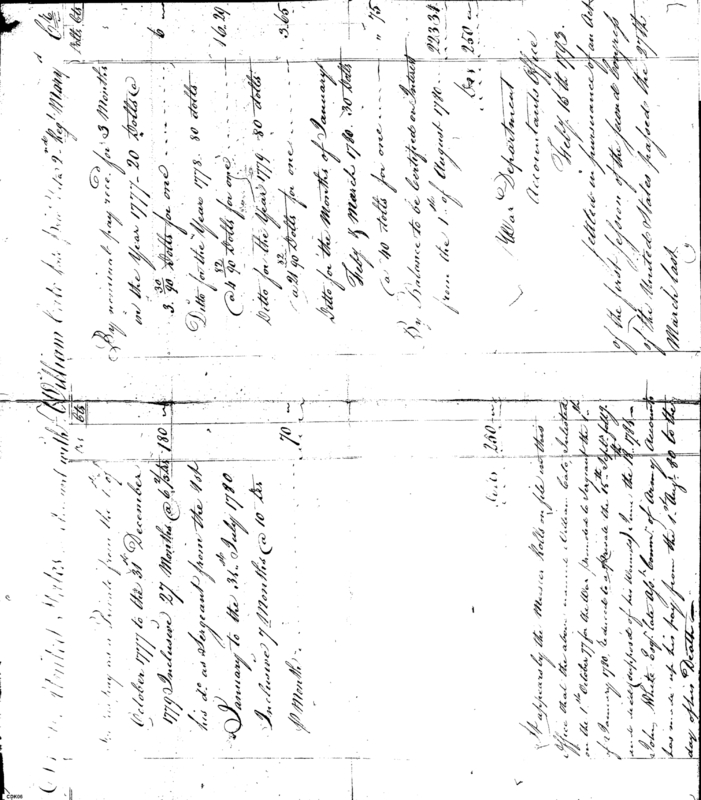 The United States in Account with William Cole his private in 2nd Regt Mary
Cr
Dolls Cts
To his pay as a Private from the 1st of
October 1777 to the 31st December
1779 Inclusive 27 Months @ 6 2/3 180
his do as Sergeant from the 1st
January to the 31st July 1780
Inclusive 7 Months @ 10 Drs
pr Month 70
Dolls 250
It appears by the Muster Rolls on file in this
Office that the above named William Cole, Inlisted
on the 1st October 77 for the War, promoted to Sergeant the 1st
of January 1780, reduced to a private the 15th Septr follg
and died (supposed of his Wounds) June the 1781 —
John White Esqr late Commr of Army Accounts
has made up his pay from the 1st Augt 80 to the
day of his Death —
By nominal pay rec. for 3 Months
in the Year 1777 20 Dolls @
3 30/90 Dolls for one 6
Ditto for the Year 1778 80 Dolls
@ 4 82/90 Dolls for one 16.29
Ditto for the Year 1779 80 Dolls
@ 21 82/90 Dolls for one 3.65
Ditto for the Months of January
Feby & March 1780 30 Dolls
@ 40 Dolls for one " 75
By Balance to be Certified on Interest
from the 1st of August 1780 223.31
Dolls 250
War Department
Accountants Office
Feby 16th 1793
Settled in pursuance of an Act
of the first Session of the second Congress
of the United States passed the 27th
March last
CDK06